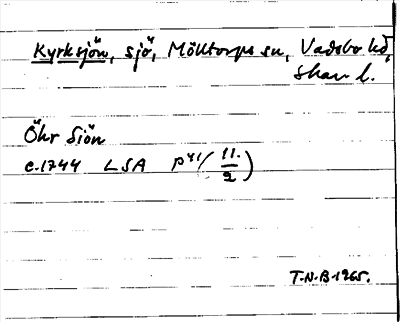 Kyrksjön, sjö, Mölltorps sn, Vadsbo hd,
Skar l.
Öhr Siön
c.1744 LSA P41 (11./2)
T.N.B 1965.